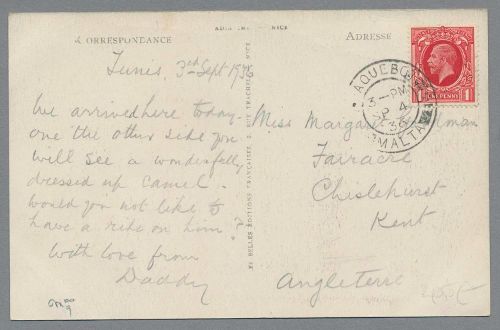 CORRESPONDANCE
ADRESSE
Tunis, 3rd Sept 1936
We arrived here today
one the other side you
will see a wonderfully
dressed up camel.
would you not like to
have a ride on him
with love from
Daddy
Miss Margaret
Fairacre
Chislehurst
Kent
Angleterre
PAQUEBOT
3-PM
4
36
MALTA
ONE PENNY
1 1
LES BELLES ÉDITIONS FRANÇAISES
NICE